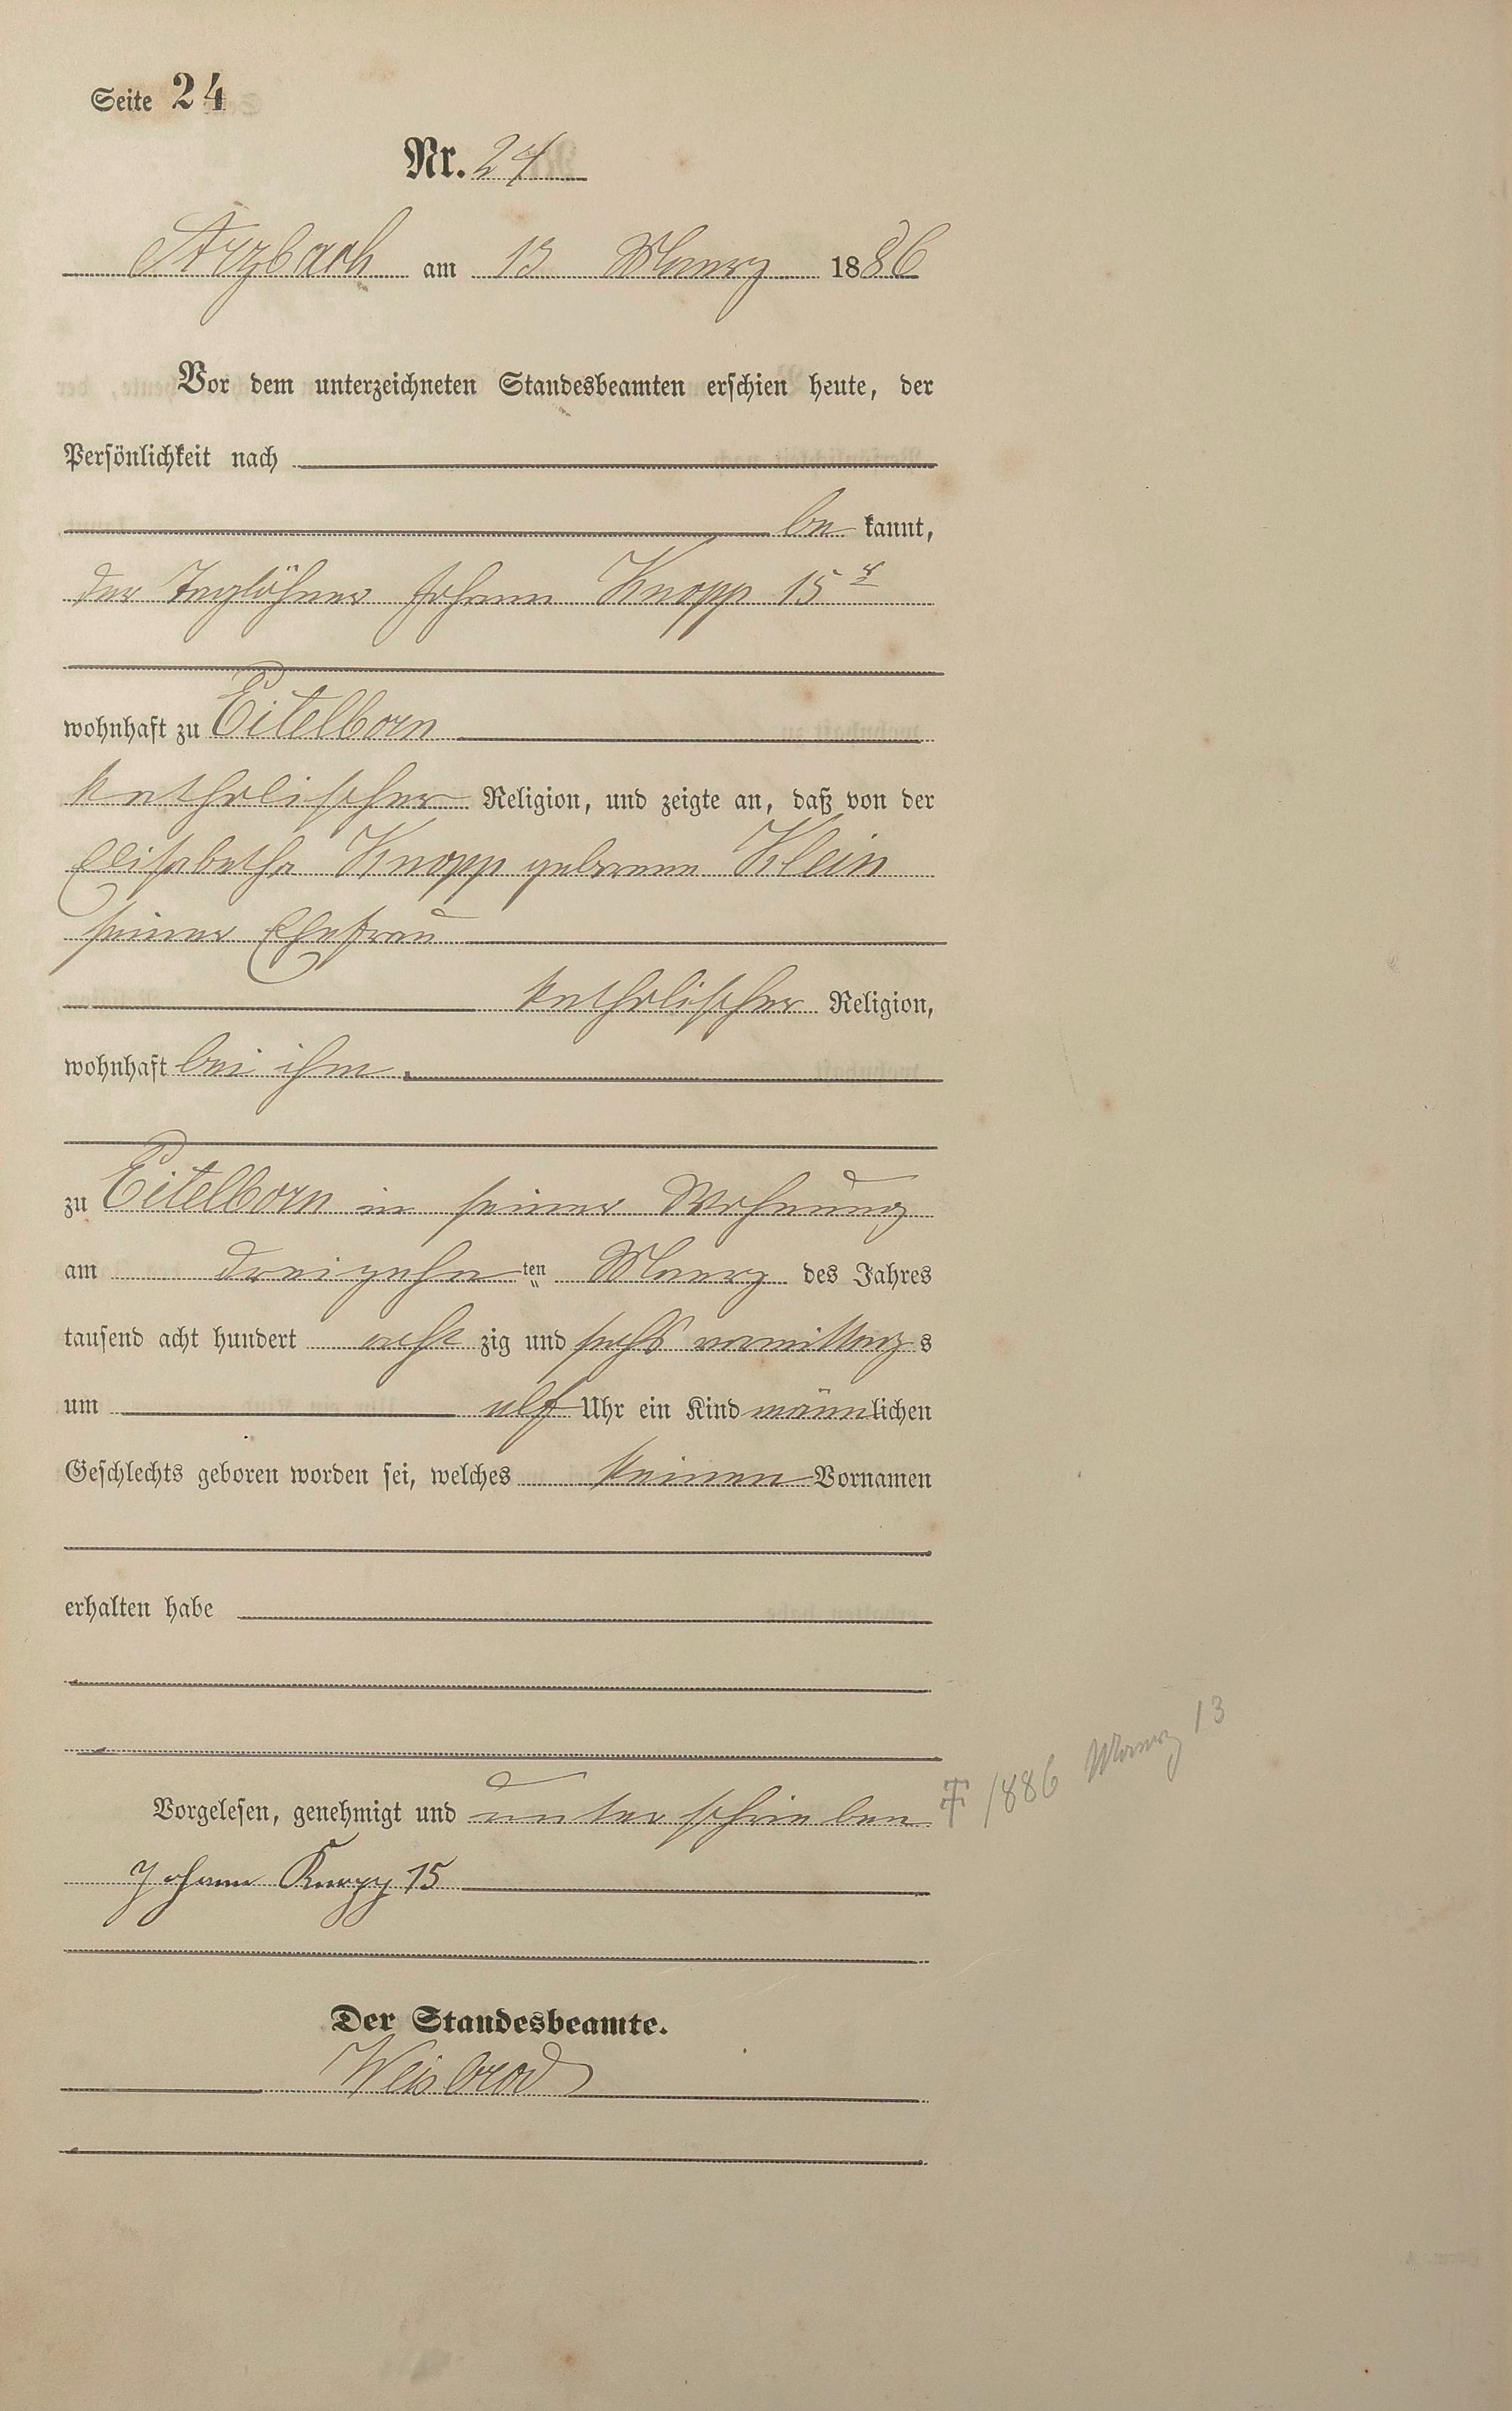 Seite 24
Nr. 24
Arzbach am 13 Maerz 1886
Vor dem unterzeichneten Standesbeamten erschien heute, der
Persönlichkeit nach
be kannt,
der Taglöhner Johann Knopp 15r
wohnhaft zu Eitelborn
katholischer Religion, und zeigte an, daß von der
Elisabetha Knopp geborene Klein
seiner Ehefrau
katholischer Religion,
wohnhaft bei ihm
zu Eitelborn in seiner Wohnung
am dreizehn ten Maerz des Jahres
tausend acht hundert acht zig und sechs vormittags
um elf Uhr ein Kind männlichen
Geschlechts geboren worden sei, welches keinen Vornamen
erhalten habe
Vorgelesen, genehmigt und unterschrieben
† 1886 Maerz 13
Johann Knopp 15
Der Standesbeamte.
Weisbrod